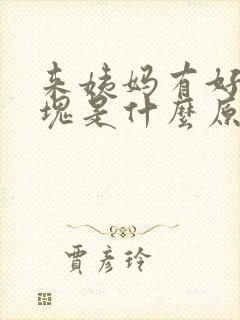 来姨妈有好
块是什麼原
賈彦玲